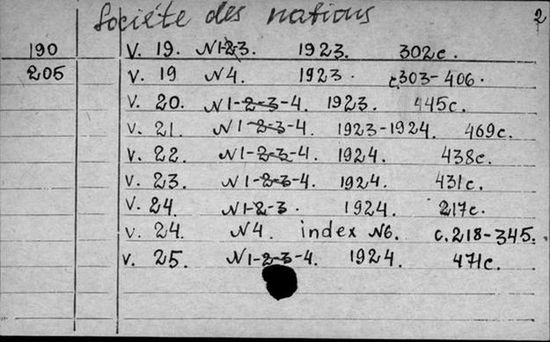 Société des nations 2
190 V. 19. N1-2-3. 1923. 302c.
205 V. 19 N4. 1923. c.303-406.
V. 20. N1-2-3-4. 1923. 445c.
V. 21. N1-2-3-4. 1923-1924. 469c.
V. 22. N1-2-3-4. 1924. 438c.
V. 23. N1-2-3-4. 1924. 431c.
V. 24. N1-2-3. 1924. 217c.
V. 24. N4. index N6. c.218-345.
V. 25. N1-2-3-4. 1924. 471c.